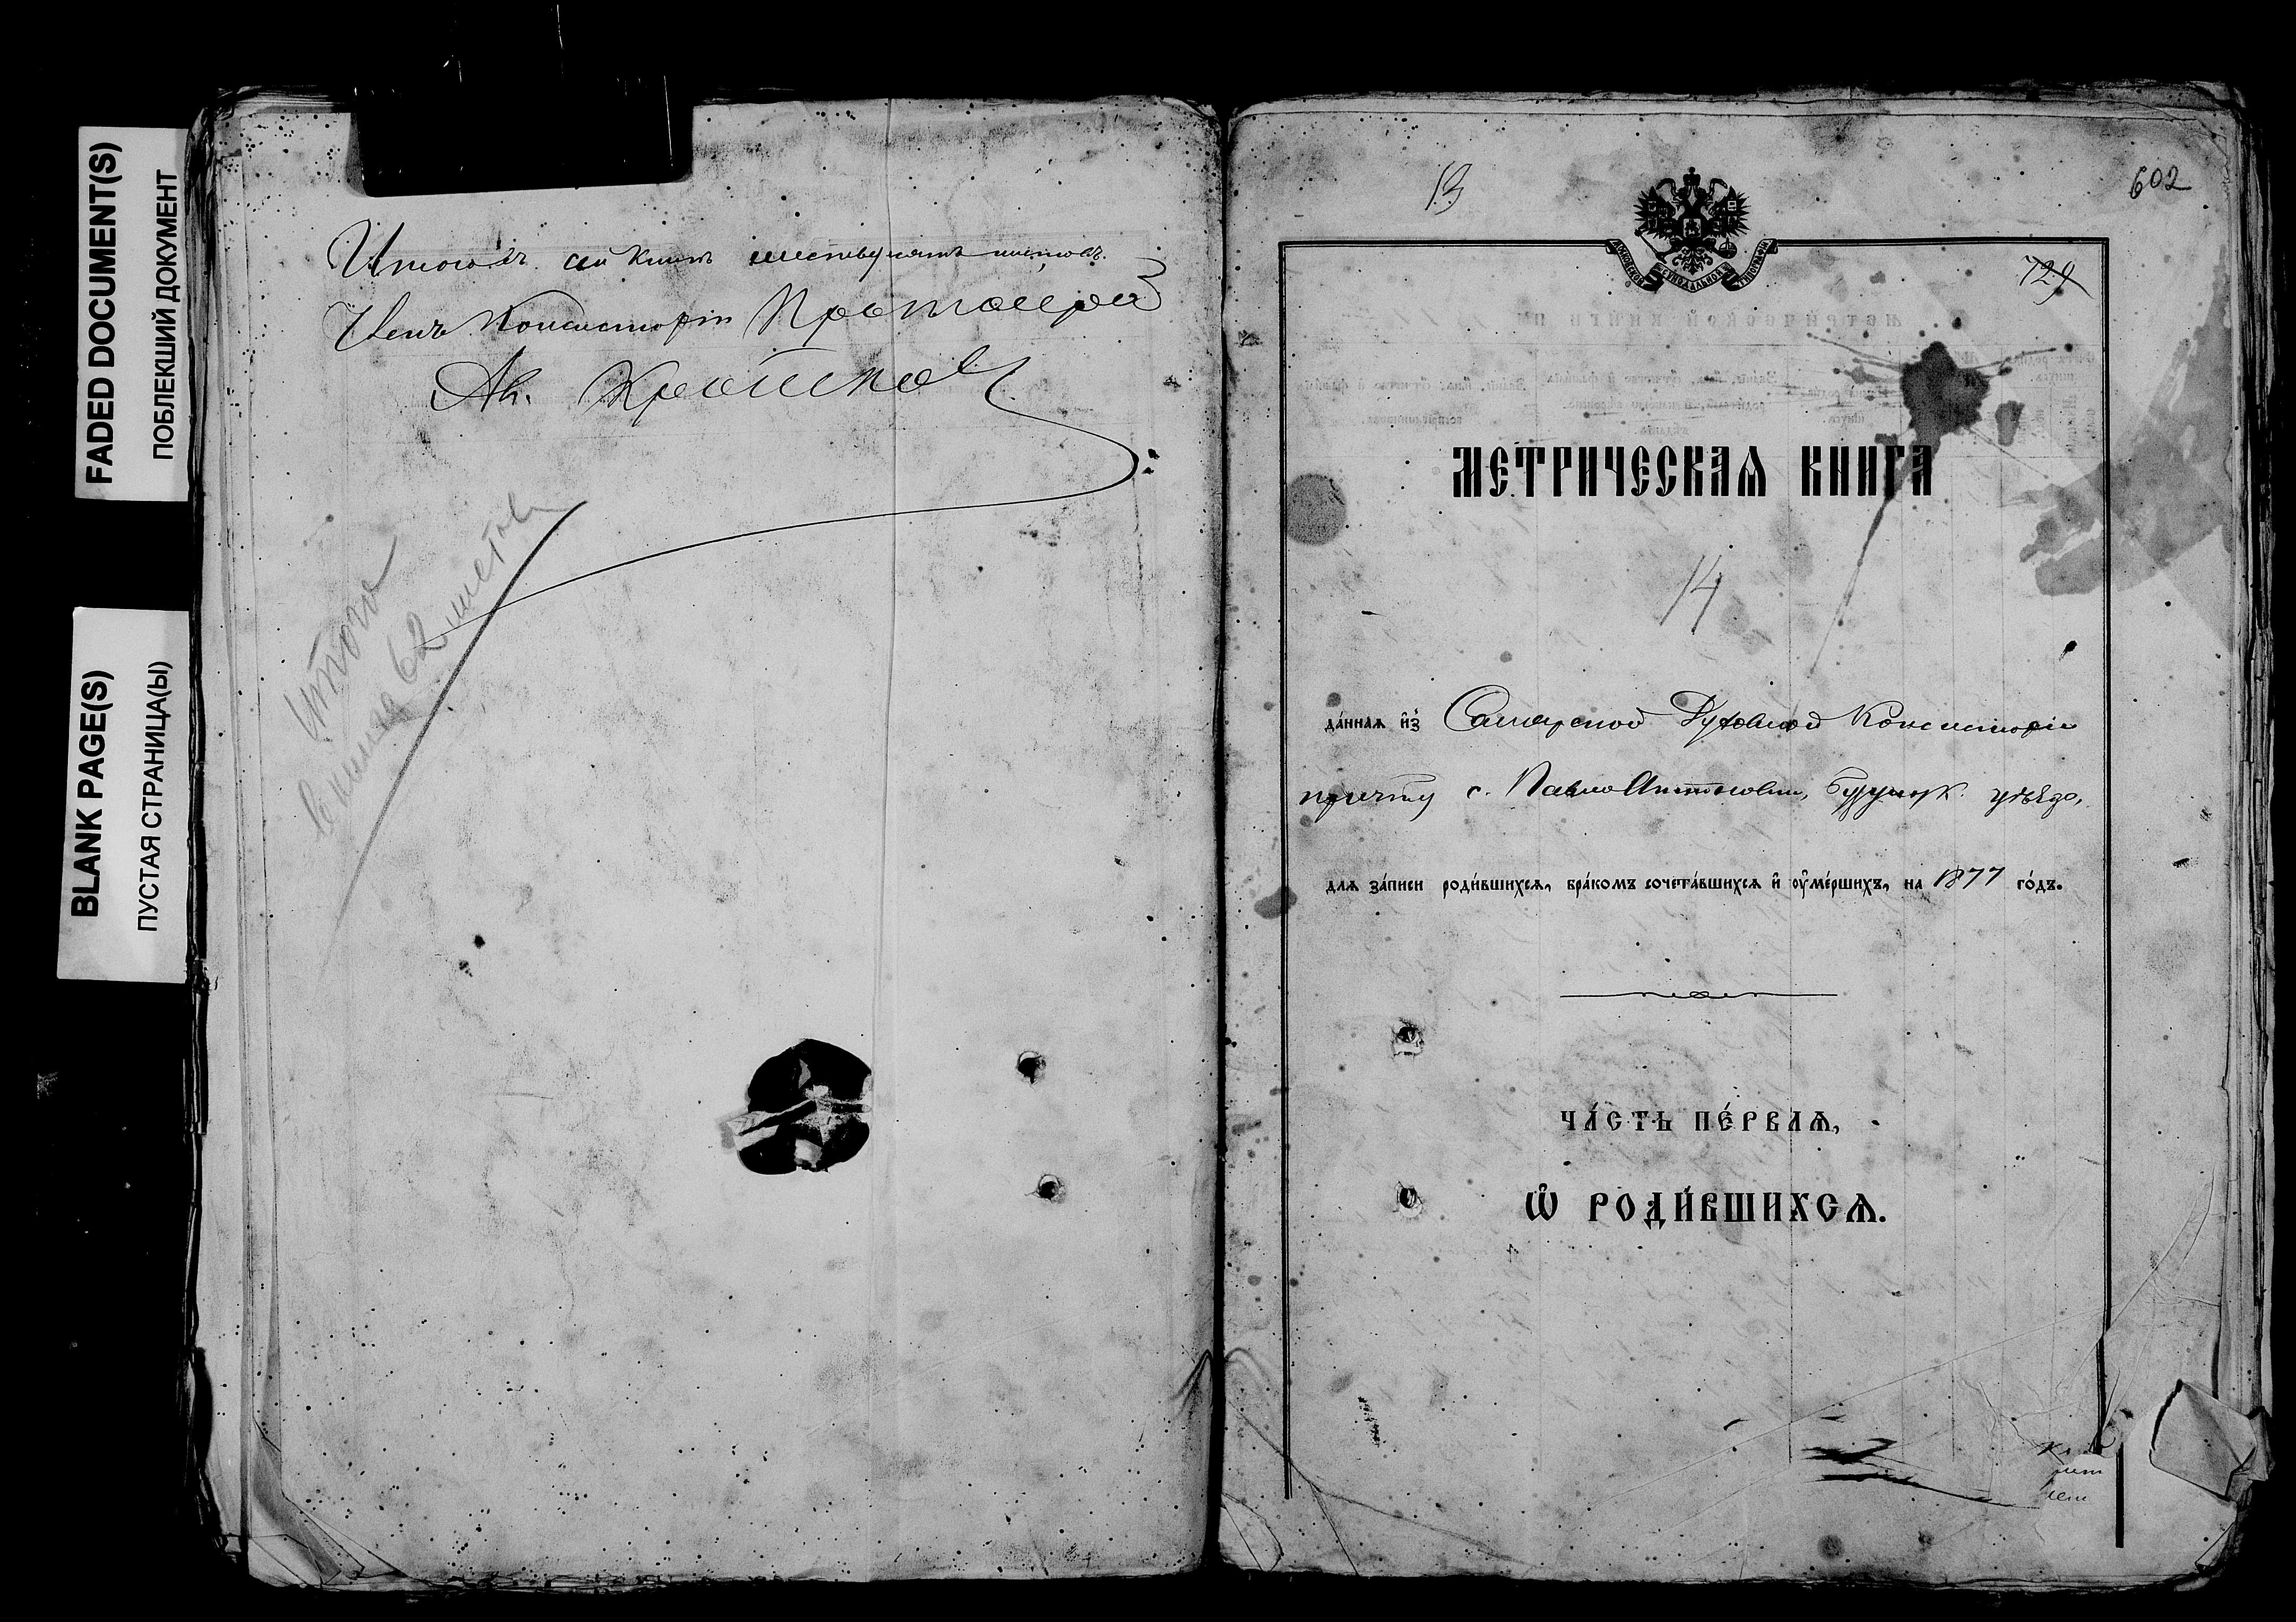 FADED DOCUMENT(S)
ПОБЛЕКШИЙ ДОКУМЕНТ
BLANK PAGE(S)
ПУСТАЯ СТРАНИЦА(Ы)
Итого въ сей книгѣ шестьдесятъ листовъ.
Членъ Консисторіи Протоіерей
Итого
62 листов
13
602
МОСКОВСКОЙ СѴНОДАЛЬНОЙ ТИПОГРАФІИ
729
МЕТРИЧЕСКАѦ КНИГА
14
да́ннаѧ и҆з̾ Самарской Духовной Консисторіи
причту с. ПавлоАнтоновки, Бузулук. уѣзда,
длѧ за́писи роди́вшихсѧ, бра́комъ сочета́вшихсѧ и҆ ᲂу҆ме́ршихъ, на 1877 го́дъ.
ЧА́СТЬ ПЕ́РВАѦ,
Ѽ РОДИ́ВШИХСѦ.